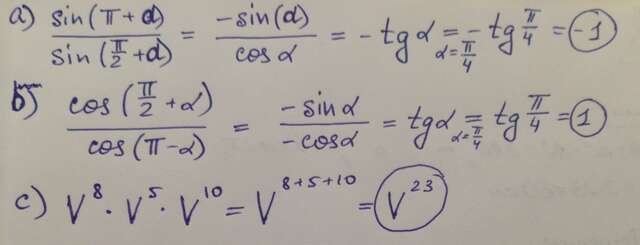 a) sin(π+α)/sin(π/2+α) = -sin(α)/cos α = -tg α =_{α=π/4} -tg π/4 = -1
b) cos(π/2+α)/cos(π-α) = -sinα/-cosα = tgα =_{α=π/4} tg π/4 = 1
c) V^8 · V^5 · V^10 = V^{8+5+10} = V^23